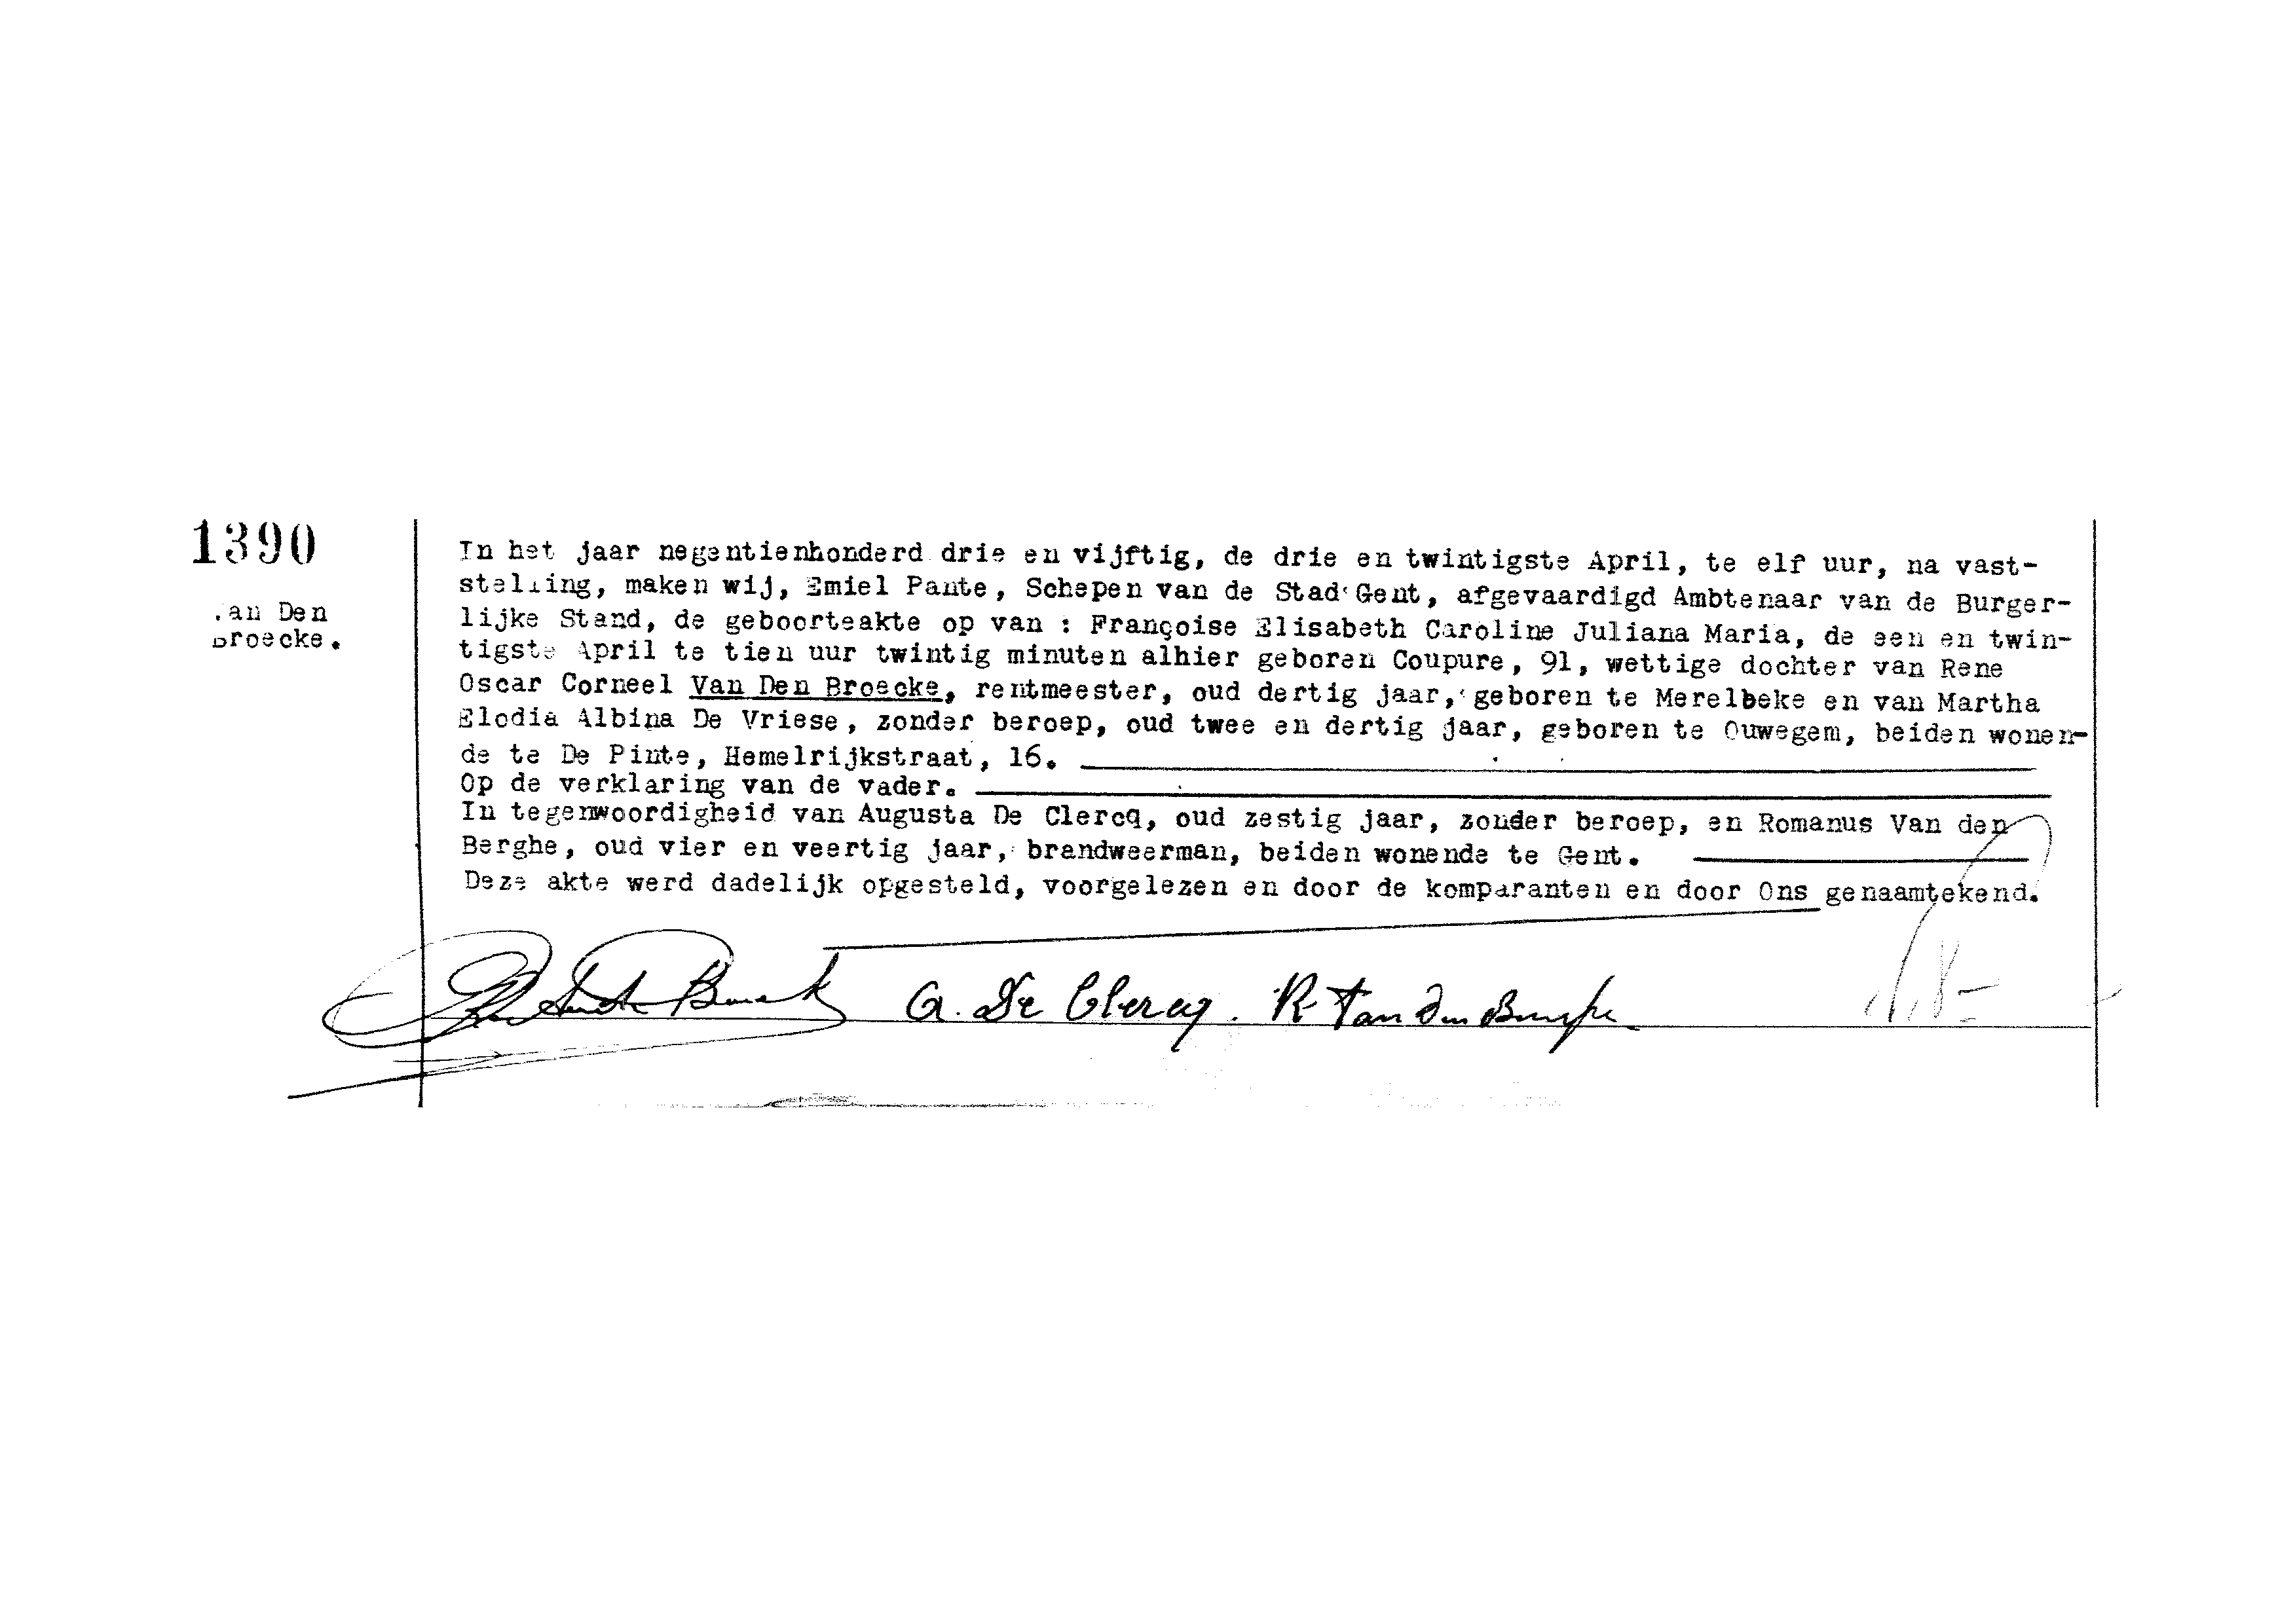 1390
an Den
Broecke.
In het jaar negentienhonderd drie en vijftig, de drie en twintigste April, te elf uur, na vast-
stelling, maken wij, Emiel Pante, Schepen van de Stad Gent, afgevaardigd Ambtenaar van de Burger-
lijke Stand, de geboorteakte op van : Françoise Elisabeth Caroline Juliana Maria, de een en twin-
tigste April te tien uur twintig minuten alhier geboren Coupure, 91, wettige dochter van Rene
Oscar Corneel Van Den Broecke, rentmeester, oud dertig jaar, geboren te Merelbeke en van Martha
Elodia Albina De Vriese, zonder beroep, oud twee en dertig jaar, geboren te Ouwegem, beiden wonen-
de te De Pinte, Hemelrijkstraat, 16.
Op de verklaring van de vader.
In tegenwoordigheid van Augusta De Clercq, oud zestig jaar, zonder beroep, en Romanus Van den
Berghe, oud vier en veertig jaar, brandweerman, beiden wonende te Gent.
Deze akte werd dadelijk opgesteld, voorgelezen en door de komparanten en door Ons genaamtekend.
A. De Clercq. R Van Den Berghe